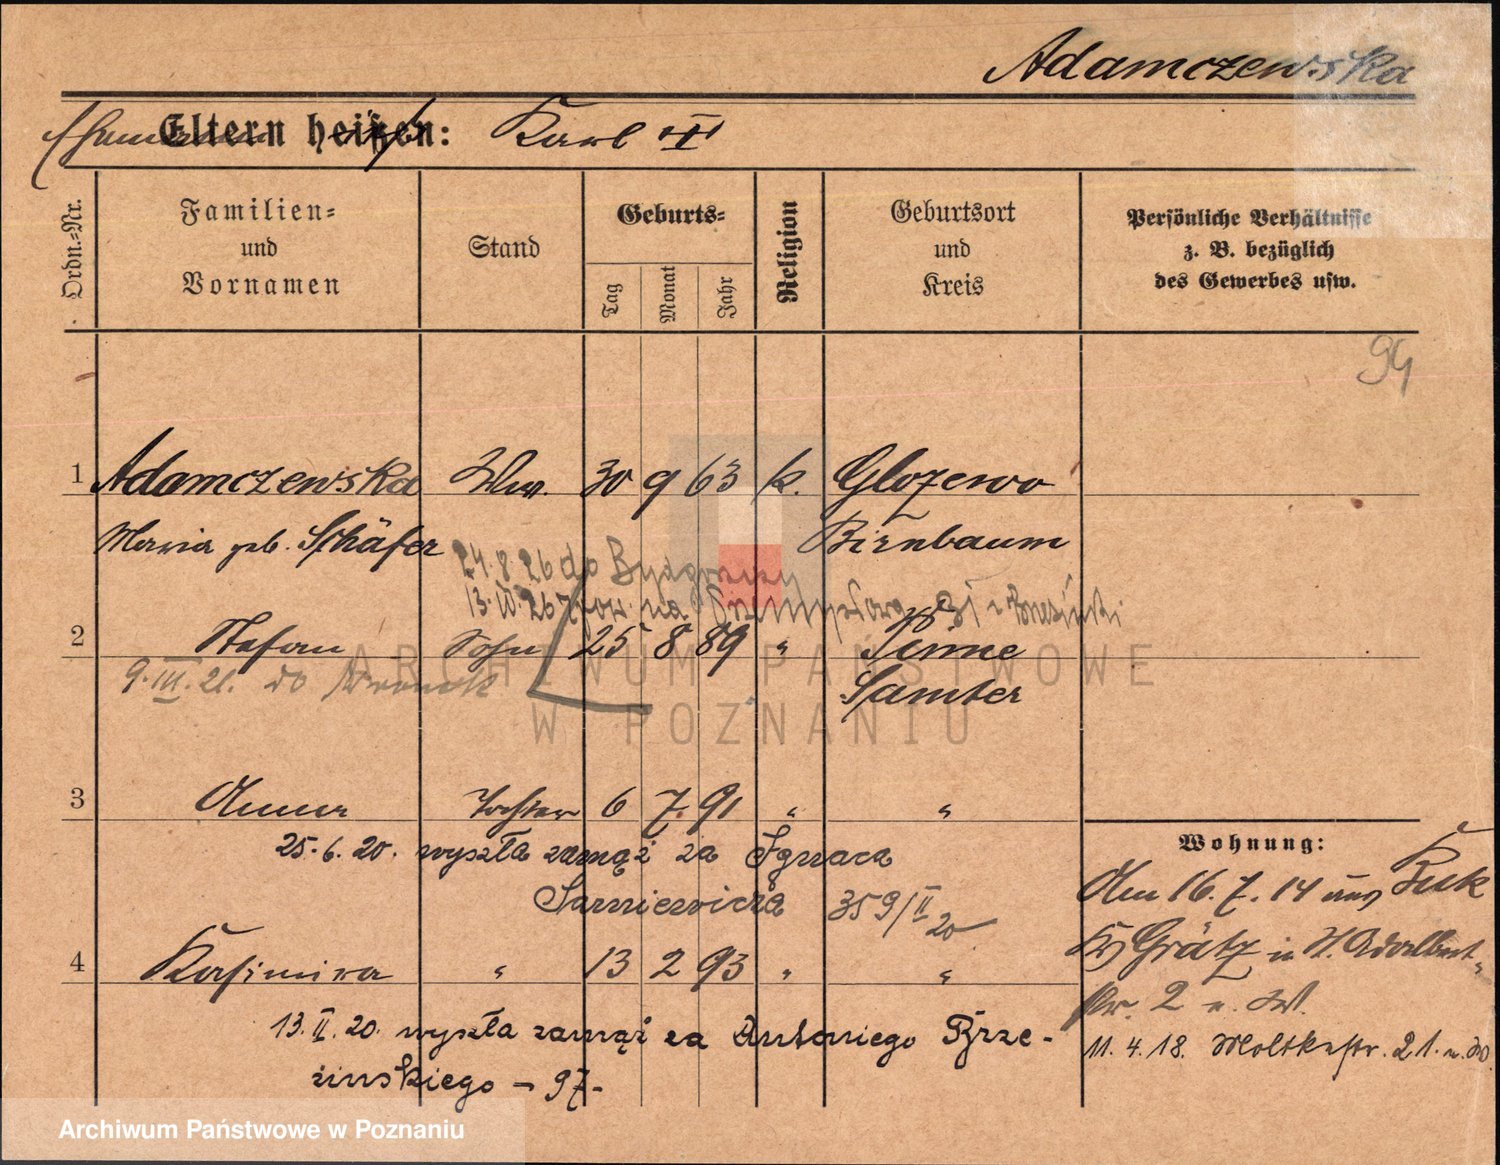 Adamczewska
Eltern heißen: Karl III
Ordn.-Nr.
Familien-
und
Vornamen
Stand
Geburts-
Tag
Monat
Jahr
Religion
Geburtsort
und
Kreis
Persönliche Verhältnisse
z. B. bezüglich
des Gewerbes usw.
94
1 Adamczewska Ww. 30 9 63 k. Glozewo
Maria geb. Schäfer Birnbaum
24.8.26 do Bydgoszczy
13. 26 na
2 Stefan Sohn 25 8 89 " Peine
9.III.21. do Wronek Samter
ARCHIWUM PAŃSTWOWE
W POZNANIU
3 Anna Tochter 6 7. 91 " "
25.6.20. wyszła zamąż za Ignaca
Sarniewicza 359/II 20
4 Kasimira " 13 2 93 " "
13.II.20. wyszła zamąż za Antoniego Brze-
zinskiego - 97-
Wohnung:
Am 16.7.14 aus Buk
Kr Grätz in St. Adalbert-
str. 2 b. W.
11.4.18. Moltkestr. 21. b.
Archiwum Państwowe w Poznaniu